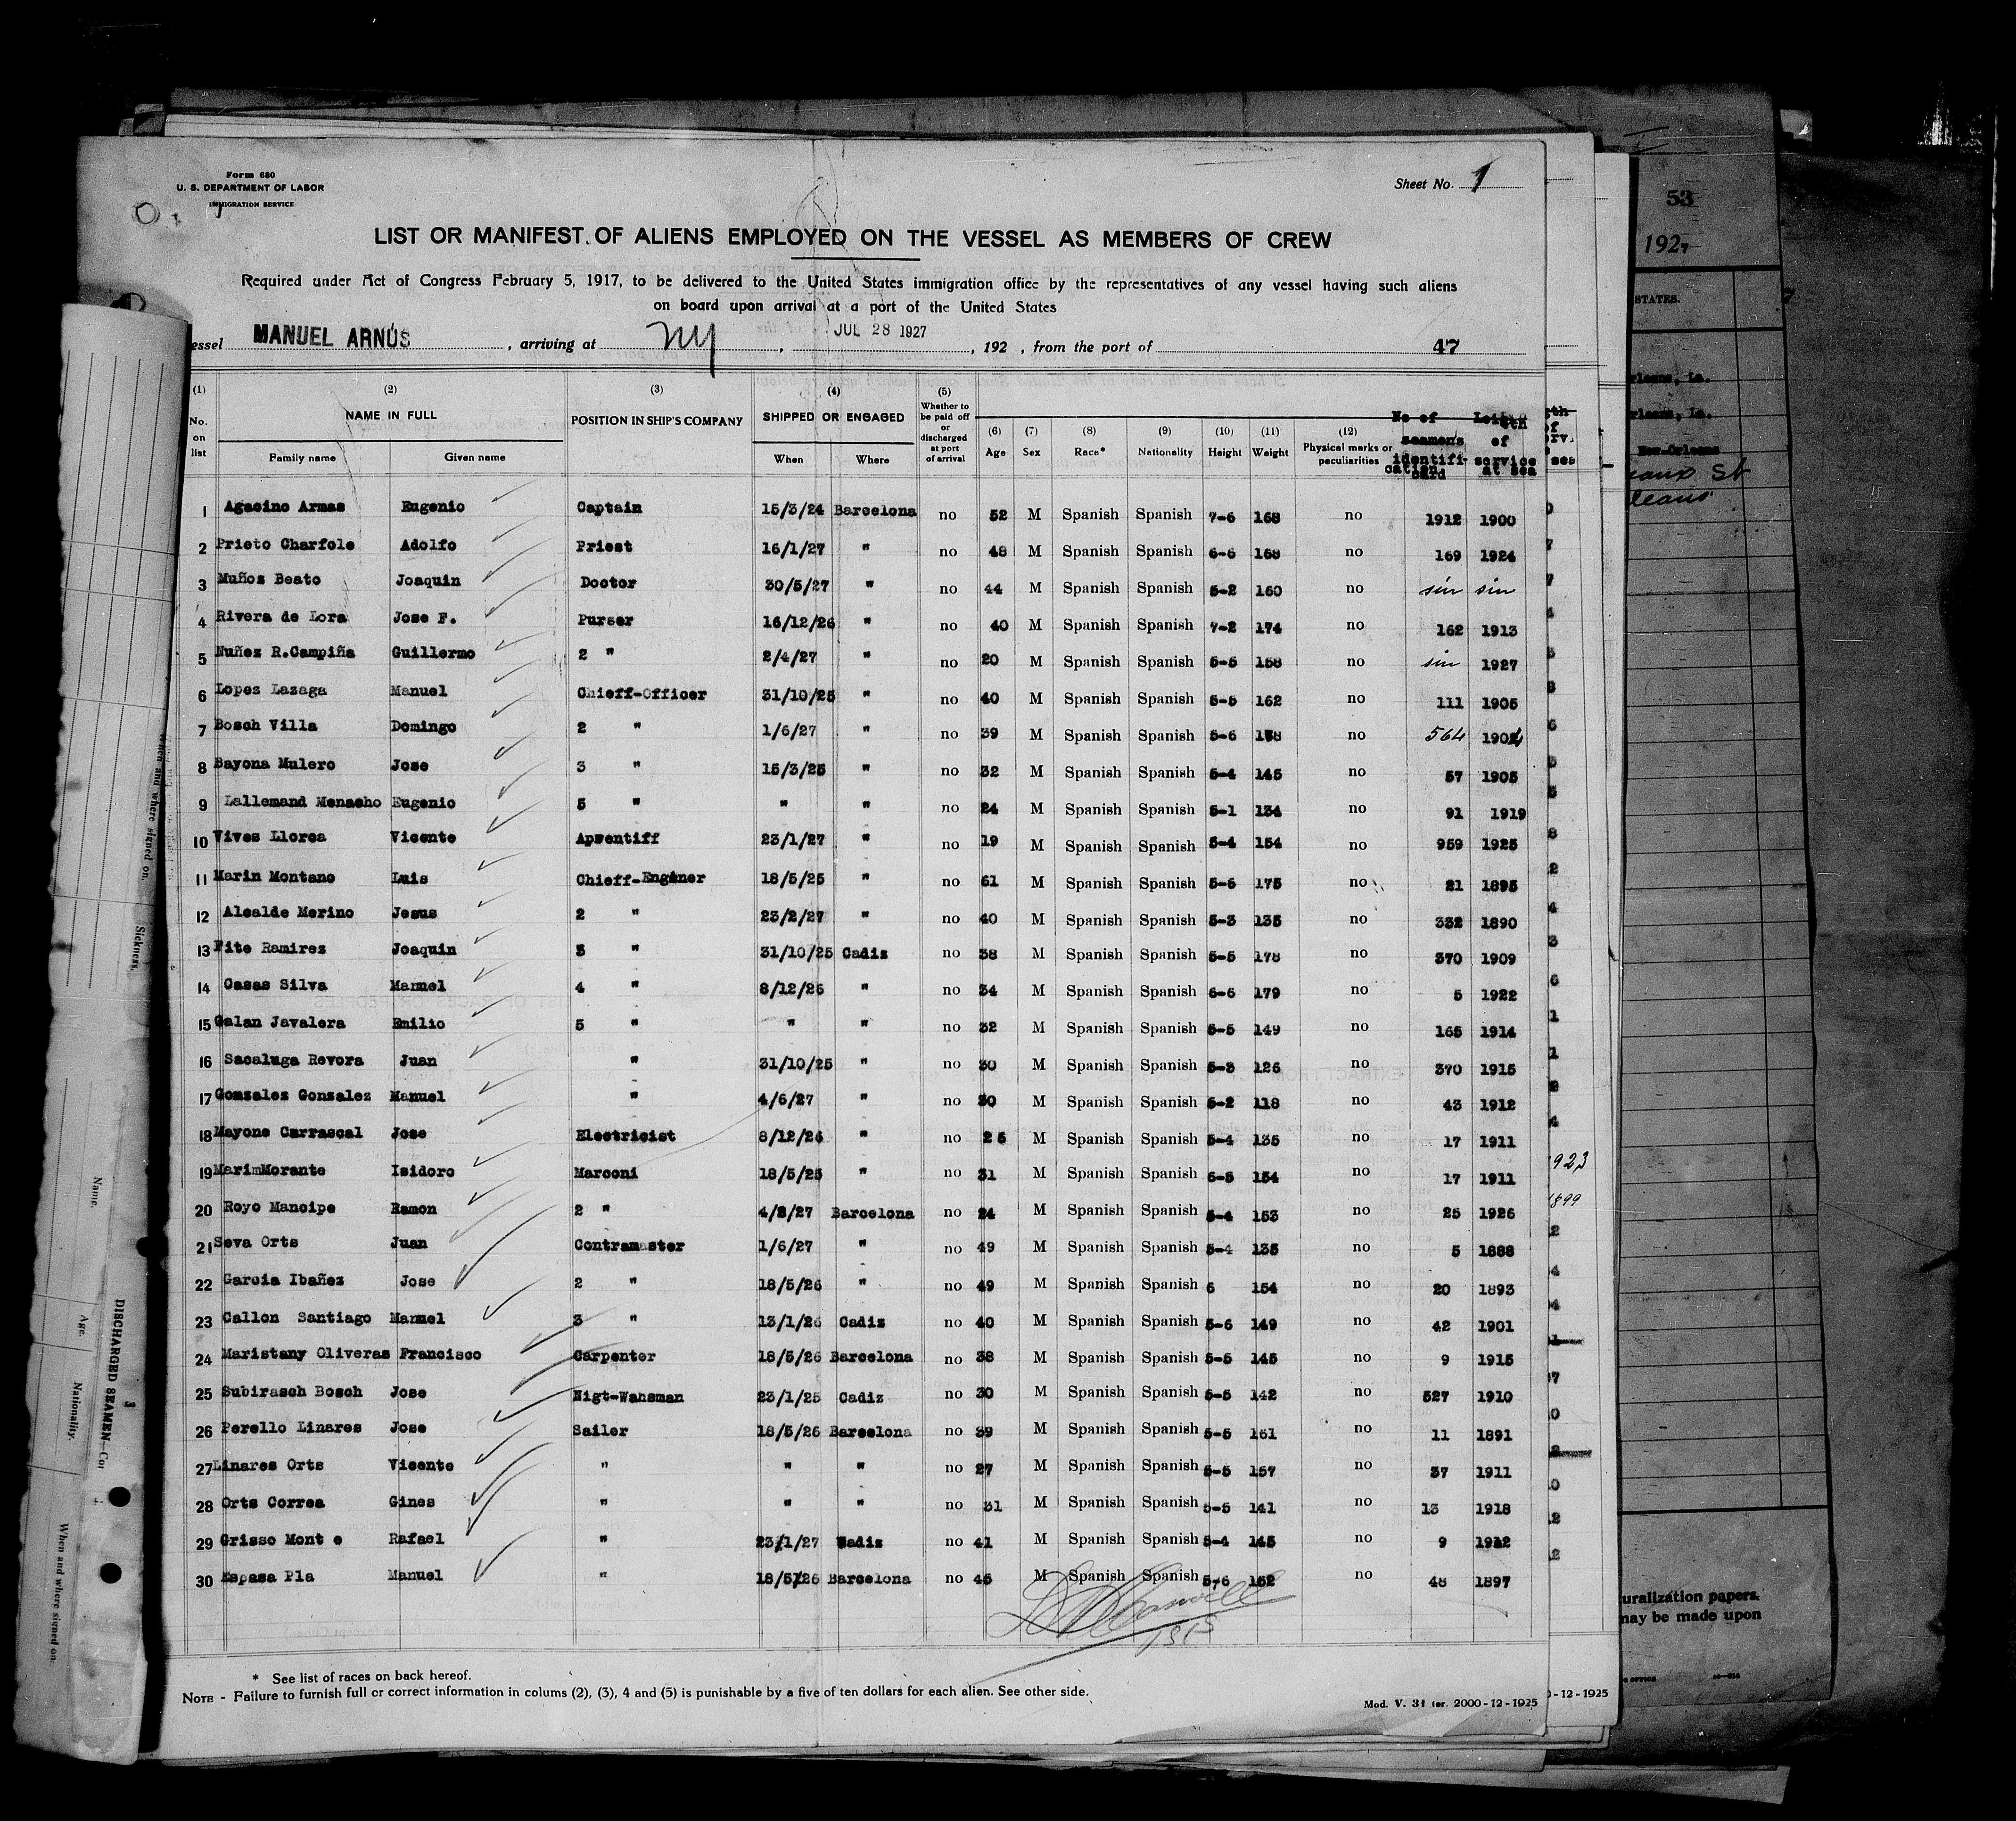 Form 680
U. S. DEPARTMENT OF LABOR
IMMIGRATION SERVICE
Sheet No. 1
LIST OR MANIFEST OF ALIENS EMPLOYED ON THE VESSEL AS MEMBERS OF CREW
Required under Act of Congress February 5, 1917, to be delivered to the United States immigration office by the representatives of any vessel having such aliens
on board upon arrival at a port of the United States
essel MANUEL ARNÚS , arriving at NY , JUL 28 1927 , 192 , from the port of 47
(1) No. on list (2) NAME IN FULL Family name Given name (3) POSITION IN SHIP'S COMPANY (4) SHIPPED OR ENGAGED When Where (5) Whether to be paid off or discharged at port of arrival (6) Age (7) Sex (8) Race* (9) Nationality (10) Height (11) Weight (12) Physical marks or peculiarities No of seamens identification card Length of service at sea
1 Agacino Armas Eugenio Captain 15/3/24 Barcelona no 52 M Spanish Spanish 7-6 168 no 1912 1900
2 Prieto Charfole Adolfo Priest 16/1/27 " no 48 M Spanish Spanish 6-6 168 no 169 1924
3 Muños Beato Joaquin Doctor 30/5/27 " no 44 M Spanish Spanish 5-2 160 no sin sin
4 Rivera de Lora Jose F. Purser 16/12/26 " no 40 M Spanish Spanish 7-2 174 no 162 1913
5 Nuñez R.Campiña Guillermo 2 " 2/4/27 " no 20 M Spanish Spanish 5-5 158 no sin 1927
6 Lopez Lazaga Manuel Chieff-Officer 31/10/25 " no 40 M Spanish Spanish 5-5 162 no 111 1905
7 Bosch Villa Domingo 2 " 1/6/27 " no 39 M Spanish Spanish 5-6 no 564 1904
8 Bayona Mulero Jose 3 " 15/3/25 " no 32 M Spanish Spanish 5-4 145 no 57 1905
9 Lallemand Menacho Eugenio 5 " " " no 24 M Spanish Spanish 5-1 134 no 91 1919
10 Vives Llorca Vicente Aprentiff 23/1/27 " no 19 M Spanish Spanish 5-4 154 no 959 1925
11 Marin Montano Luis Chieff-Enginer 18/5/25 " no 51 M Spanish Spanish 5-6 175 no 21 1895
12 Alcalde Merino Jesus 2 " 23/2/27 " no 40 M Spanish Spanish 5-3 135 no 332 1890
13 Fite Ramirez Joaquin 3 " 31/10/25 Cadiz no 38 M Spanish Spanish 5-5 178 no 370 1909
14 Casas Silva Manuel 4 " 8/12/25 " no 34 M Spanish Spanish 6-6 179 no 5 1922
15 Galan Javalera Emilio 5 " " " no 32 M Spanish Spanish 5-5 149 no 165 1914
16 Sacaluga Revora Juan " 31/10/25 " no 30 M Spanish Spanish 5-3 126 no 370 1915
17 Gonzales Gonzalez Manuel " 4/6/27 " no 30 M Spanish Spanish 5-2 118 no 43 1912
18 Mayone Carrascal Jose Electricist 8/12/26 " no 25 M Spanish Spanish 5-4 135 no 17 1911
19 MarimMorante Isidoro Marconi 18/5/25 " no 31 M Spanish Spanish 6-5 154 no 17 1911
20 Royo Mancipe Ramon 2 " 4/8/27 Barcelona no 24 M Spanish Spanish 5-4 153 no 25 1926
21 Seva Orts Juan Contramaster 1/6/27 " no 49 M Spanish Spanish 5-4 135 no 5 1888
22 Garcia Ibañez Jose 2 " 18/5/26 " no 49 M Spanish Spanish 6 154 no 20 1893
23 Callon Santiago Manuel 3 " 13/1/26 Cadiz no 40 M Spanish Spanish 5-6 149 no 42 1901
24 Maristany Oliveras Francisco Carpenter 18/5/26 Barcelona no 38 M Spanish Spanish 5-5 145 no 9 1915
25 Subirasch Bosch Jose Nigt-Wahsman 23/1/25 Cadiz no 30 M Spanish Spanish 5-5 142 no 527 1910
26 Perello Linares Jose Sailer 18/5/26 Barcelona no 39 M Spanish Spanish 5-5 161 no 11 1891
27 Linares Orts Vicente " " " no 27 M Spanish Spanish 5-5 157 no 37 1911
28 Orts Correa Gines " " " no 31 M Spanish Spanish 5-5 141 no 13 1918
29 Grisso Mont e Rafael " 23/1/27 Cadiz no 41 M Spanish Spanish 5-4 145 no 9 1912
30 Espasa Pla Manuel " 18/5/26 Barcelona no 45 M Spanish Spanish 5-6 152 no 48 1897
* See list of races on back hereof.
NOTE - Failure to furnish full or correct information in colums (2), (3), 4 and (5) is punishable by a five of ten dollars for each alien. See other side.
Mod. V. 31 ter. 2000-12-1925
0-12-1925
53
1927
STATES.
rleans, La.
rleans, La.
New-Orleans
eaux St
leans
923
1899
uralization papers.
may be made upon
When and where signed on.
Sickness.
Name.
Age.
Nationality.
When and where signed on.
DISCHARGED SEAMEN—Con
3